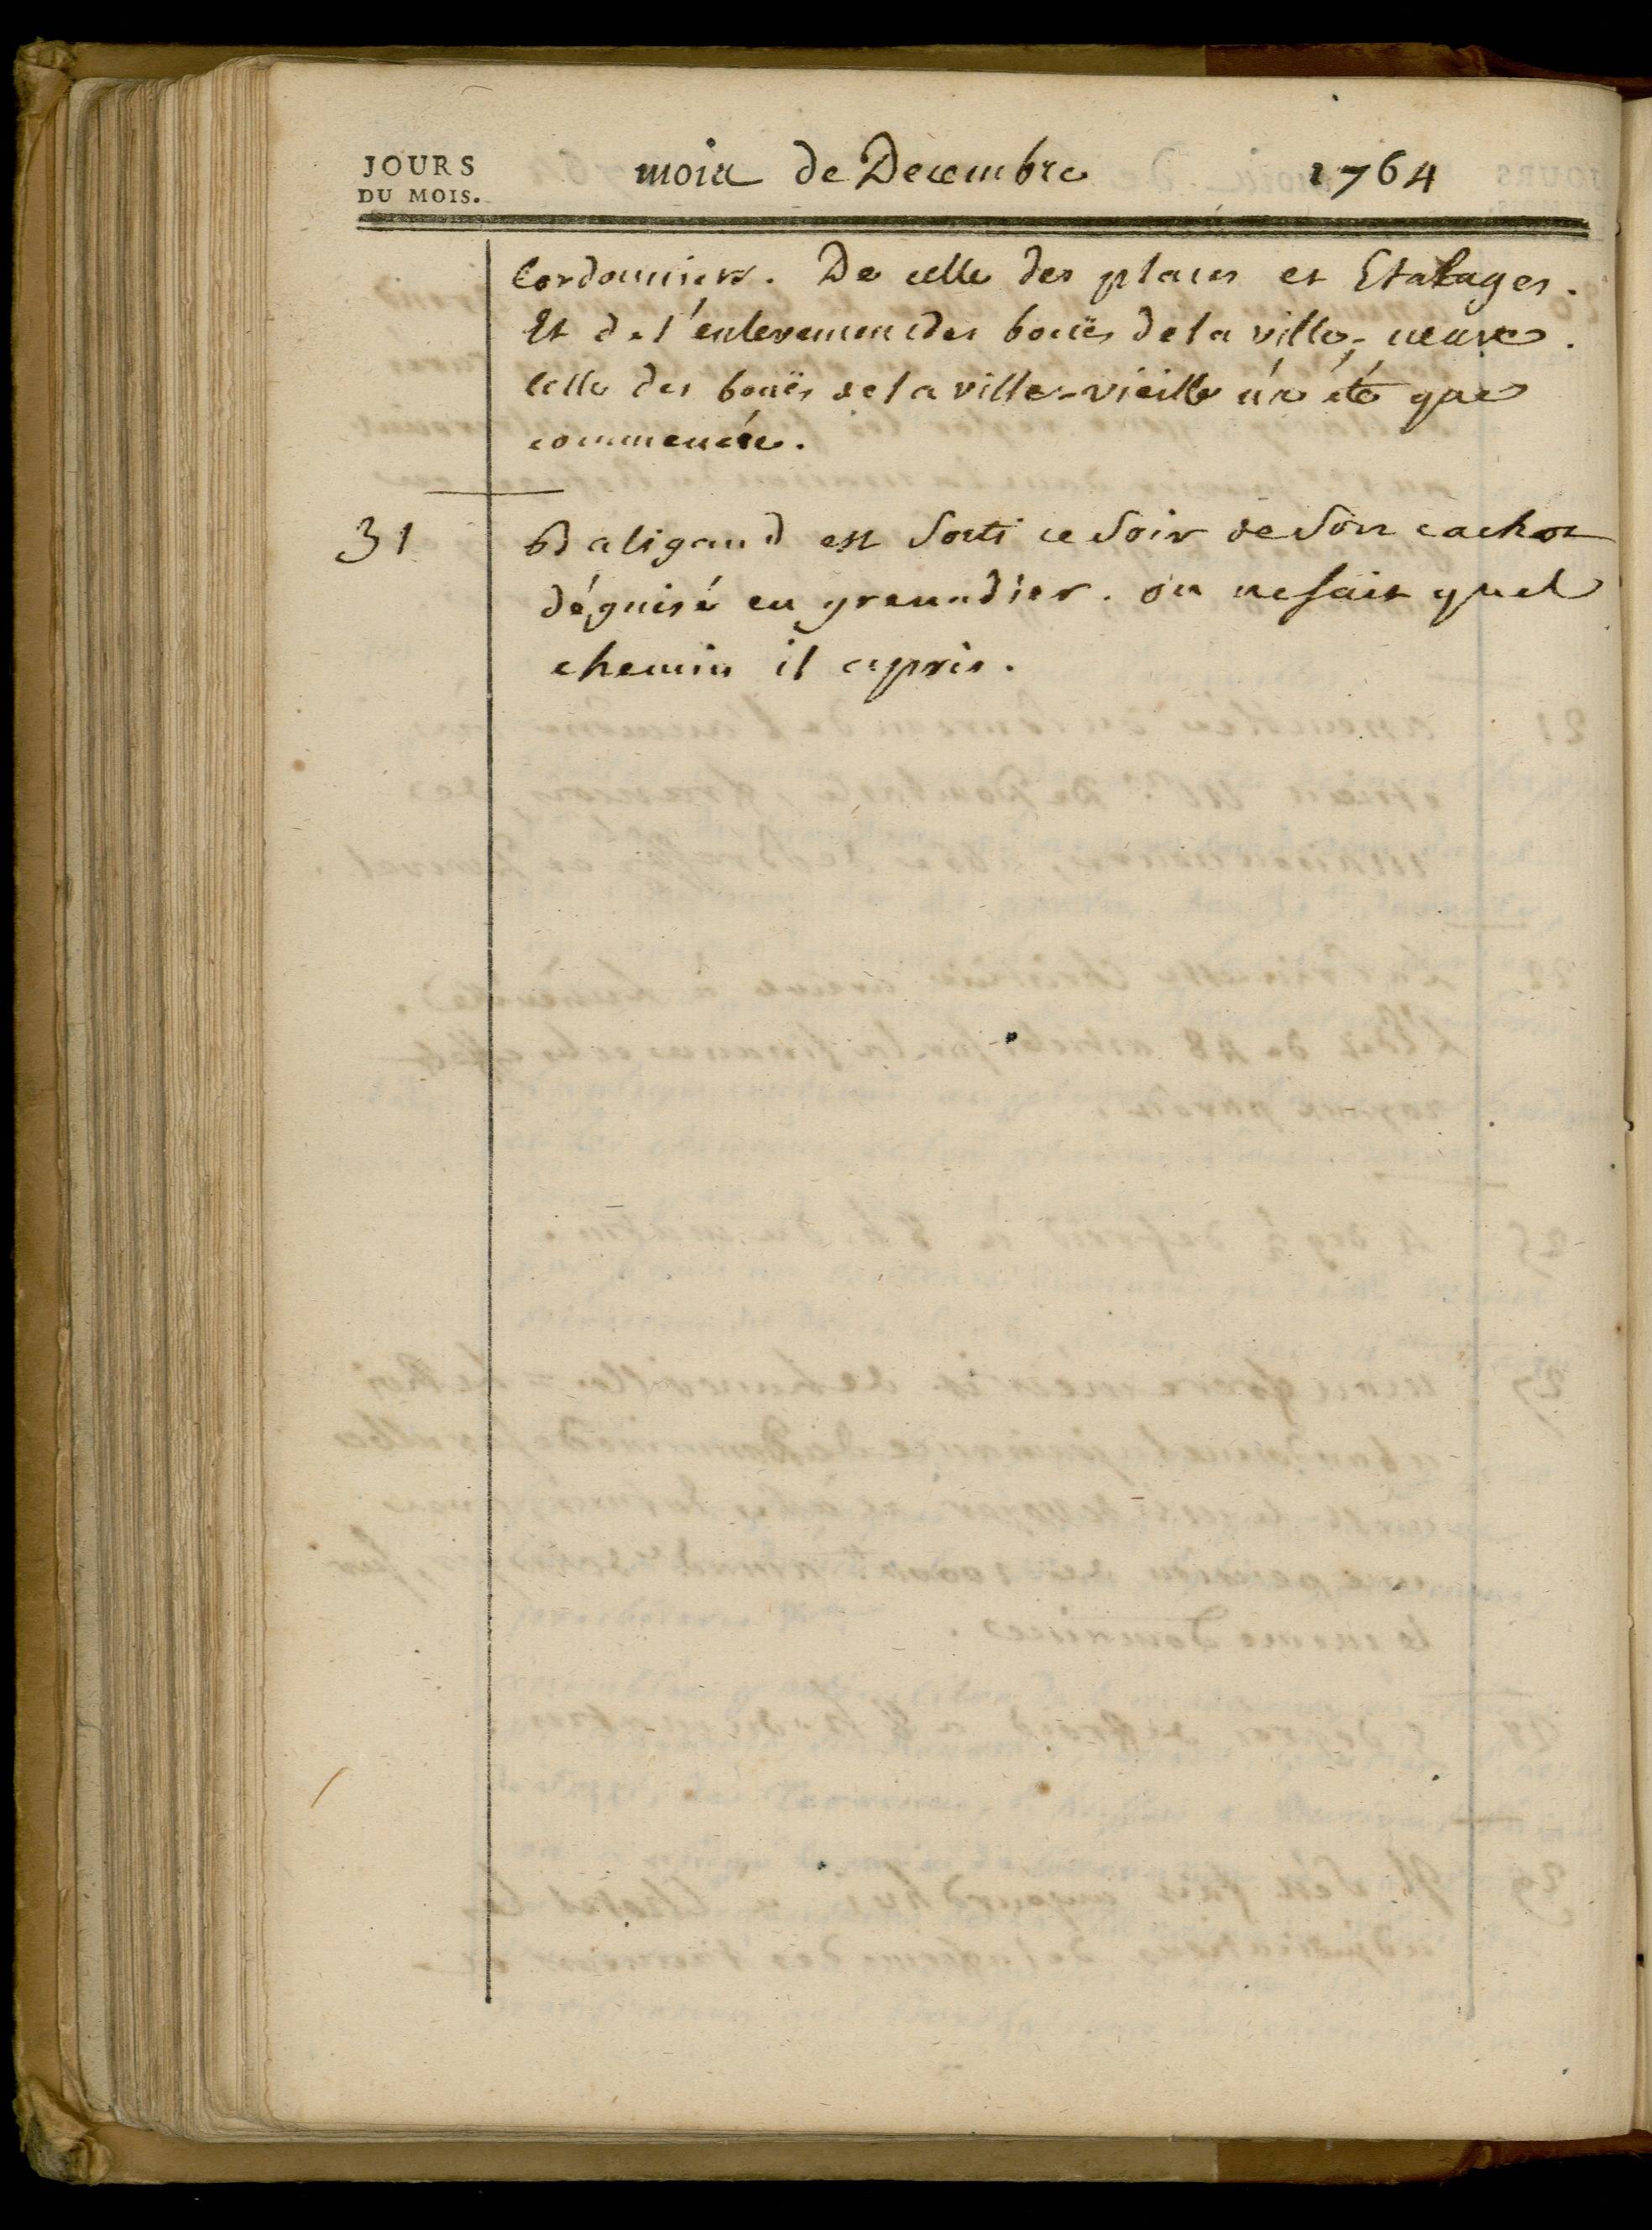 JOURS
DU MOIS.
mois de Decembre 1764
Cordonniers. De celle des places et Etalages.
Et de l'enlevement des bouës de la ville-neuve.
Celle des bouës de la ville-vieille n'a été que
commencée.
31 Baligand est sorti ce soir de son cachot
déguisé en grenadier. on ne sait quel
chemin il a pris.